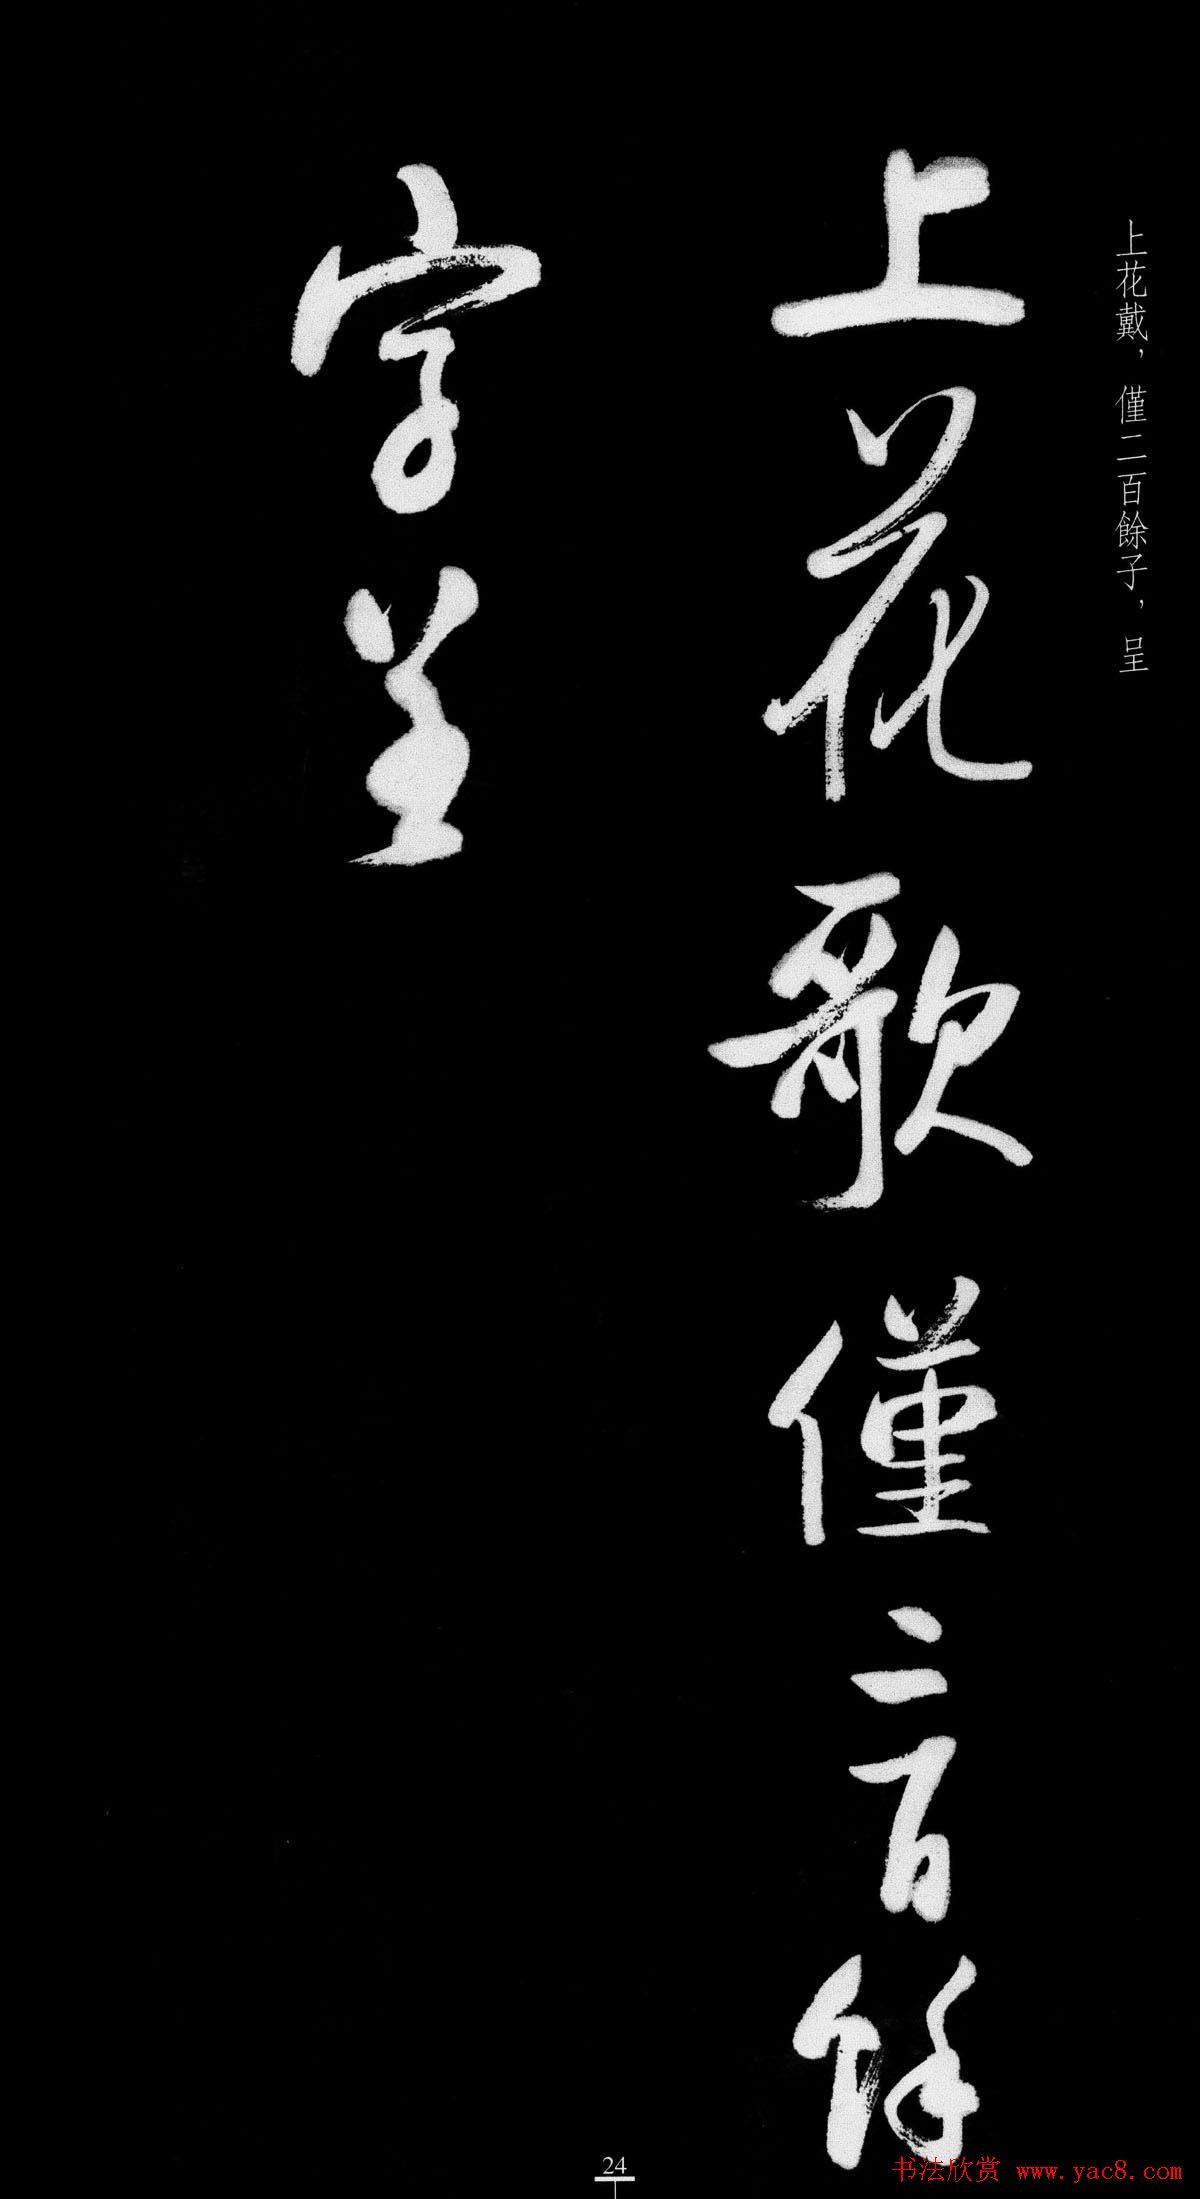 上花戴，僅二百餘子，呈
上花歌僅二百餘
字呈
24
书法欣赏 www.yac8.com